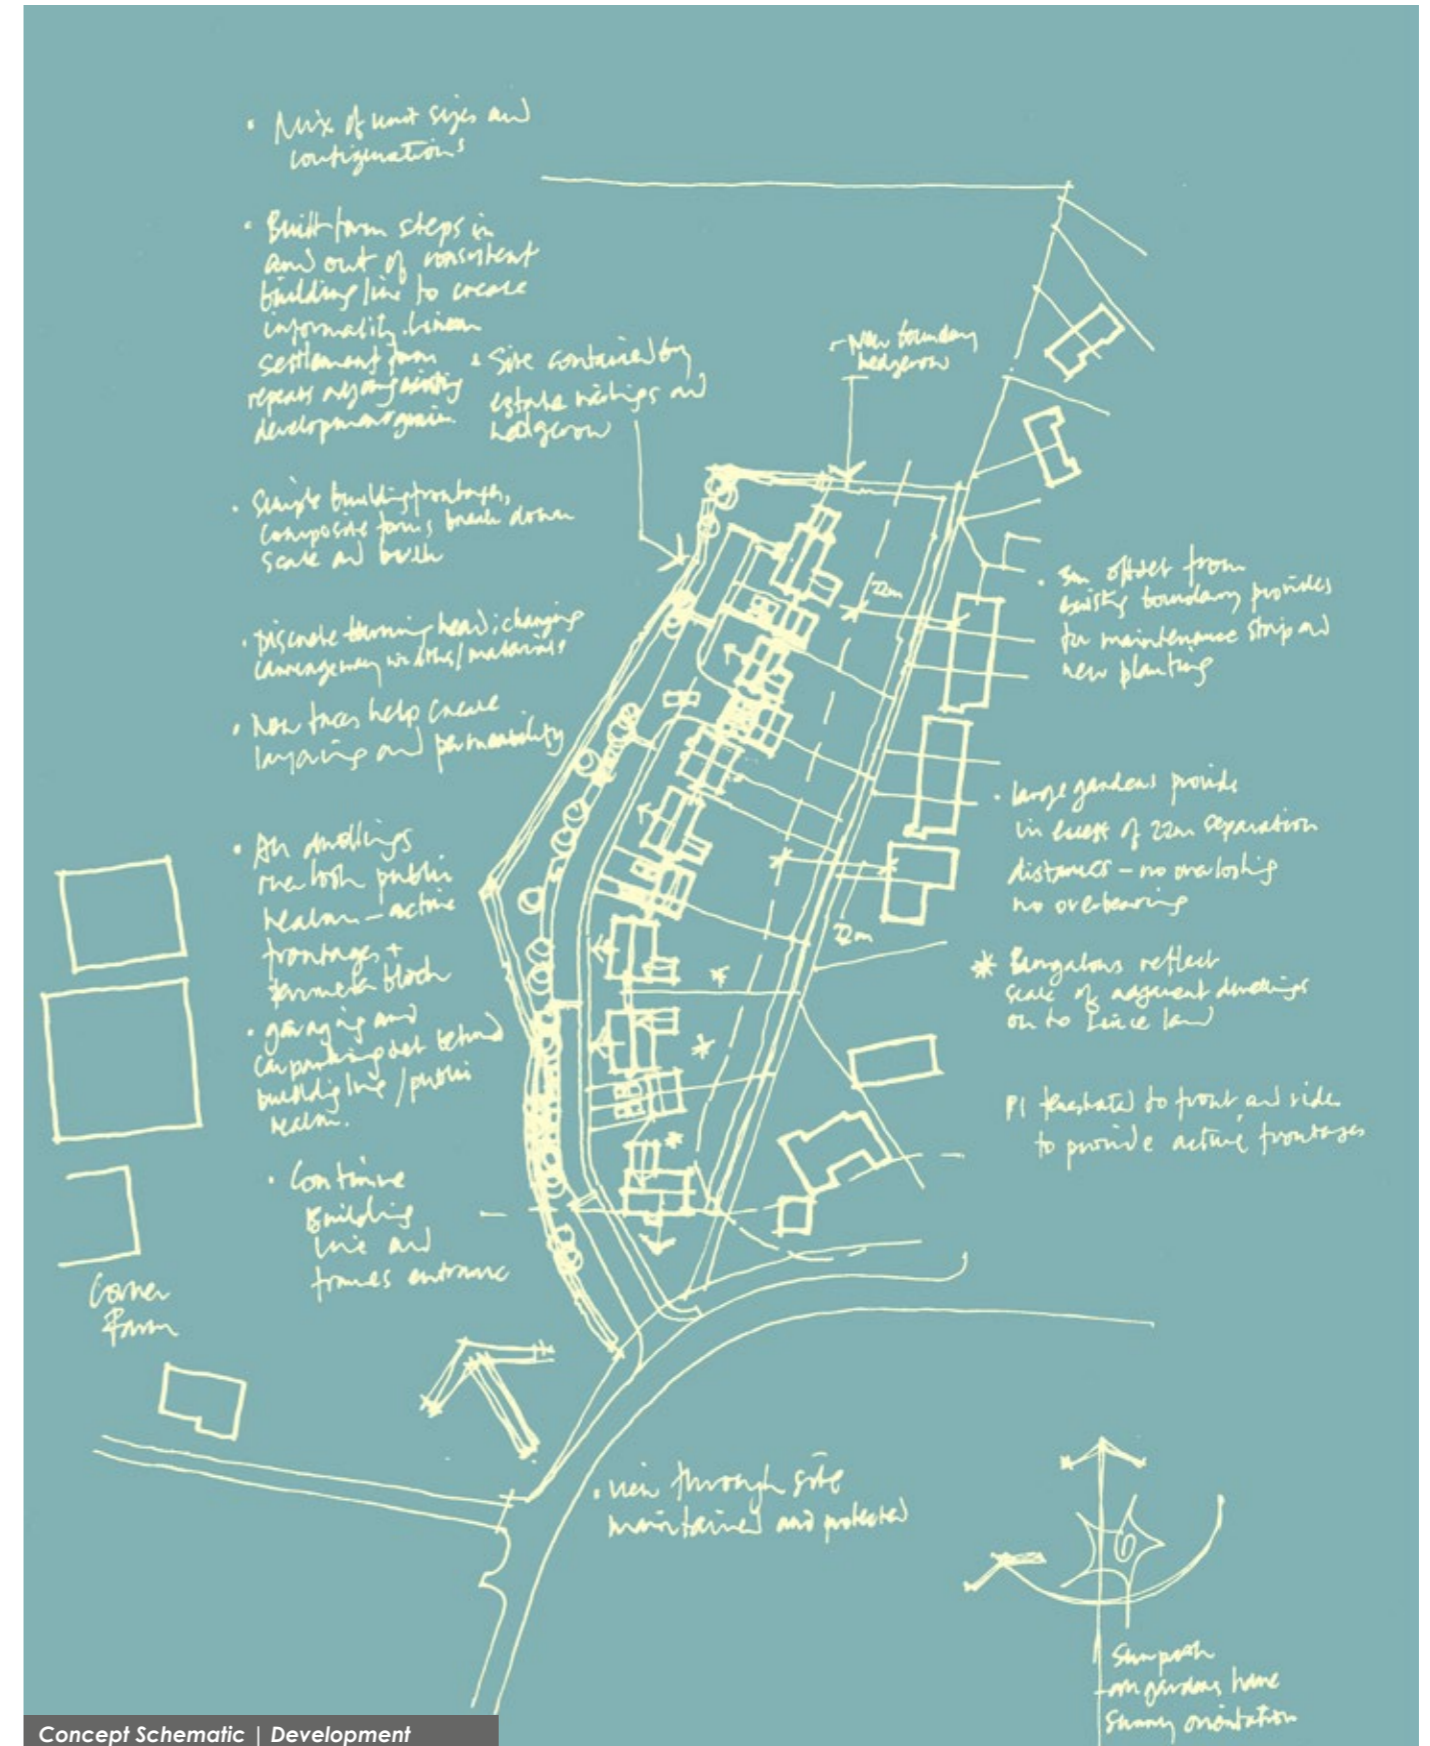 • Mix of unit sizes and
configurations
• Built form steps in
and out of consistent
building line to create
informality. Linear
settlement form
repeats existing
development grain
• Site contained by
estate railings and
hedgerow
- New boundary
hedgerow
• Simple building frontages,
composite forms break down
scale and bulk
• Discrete turning head; changing
carriageway widths/materials
• New trees help create
layering and permeability
• All dwellings
overlook public
realm – active
frontages +
perimeter block
• garaging and
car parking set behind
building line / public
realm.
• Continue
Building
line and
frames entrance
22m
22m
• 3m offset from
existing boundary provides
for maintenance strip and
new planting
• large gardens provide
in excess of 22m separation
distances – no overlooking
no overbearing
* Bungalows reflect
scale of adjacent dwellings
on to land
P1 fenestrated to front and side
to provide active frontages
Corner
Farm
• view through site
maintained and protected
Sunpath
- all gardens have
sunny orientation
Concept Schematic | Development